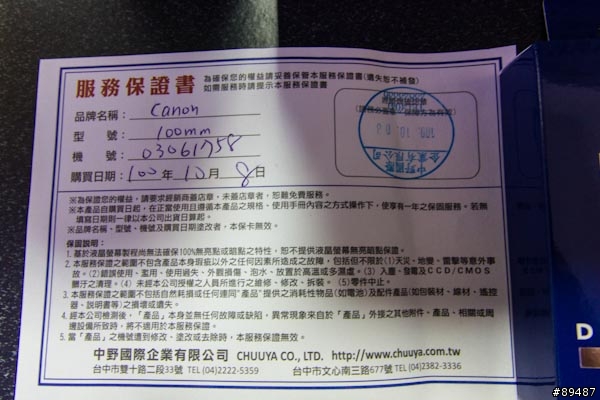 服務保證書
為確保您的權益請妥善保管本服務保證書(遺失恕不補發)
如需服務時請提示本服務保證書
品牌名稱： Canon
型　號： 100mm
機　號： 03061758
購買日期： 100 年 10 月 8 日
※為保證您的權益，請要求經銷商蓋店章，未蓋店章者，恕難免費服務。
※本產品自購買日起，在正當使用且遵循本產品之規格、使用手冊內容之方式操作下，使享有一年之保固服務。若無
填寫日期則一律以本公司出貨日算起。
※品牌名稱、型號、機號及購買日期塗改者，本保卡無效。
保固說明：
1. 基於液晶螢幕製程尚無法確保100%無亮點或暗點之特性，恕不提供液晶螢幕無亮暗點保證。
2. 本服務保證之範圍不包含產品本身瑕疵以外之任何因素所造成之故障，包括但不限於(1)天災、地變、雷擊等意外事
故。(2)錯誤使用、濫用、使用過失、外觀損傷、泡水、放置於高溫或多濕處。(3)入塵、發霉及CCD/CMOS
髒汙之清理。(4)未經本公司授權之人員所進行之維修、修改、拆裝。(5)零件中止。
3. 本服務保證之範圍不包括自然耗損或任何連同"產品"提供之消耗性物品(如電池)及配件產品(如包裝材、線材、遙控
器、說明書等)之損壞或遺失。
4. 經本公司檢測後，「產品」本身並無任何故障或缺陷，異常現象來自於「產品」外接之其他附件、產品、相關或周
邊設備所致時，將不適用於本服務保證。
5. 當「產品」之機號遭到修改、塗改或去除時，本服務保證無效。
中野國際企業有限公司 CHUUYA CO., LTD. http://www.chuuya.com.tw
台中市雙十路二段33號 TEL (04)2222-5359 台中市文心南三路677號 TEL (04)2382-3336
D
#89487